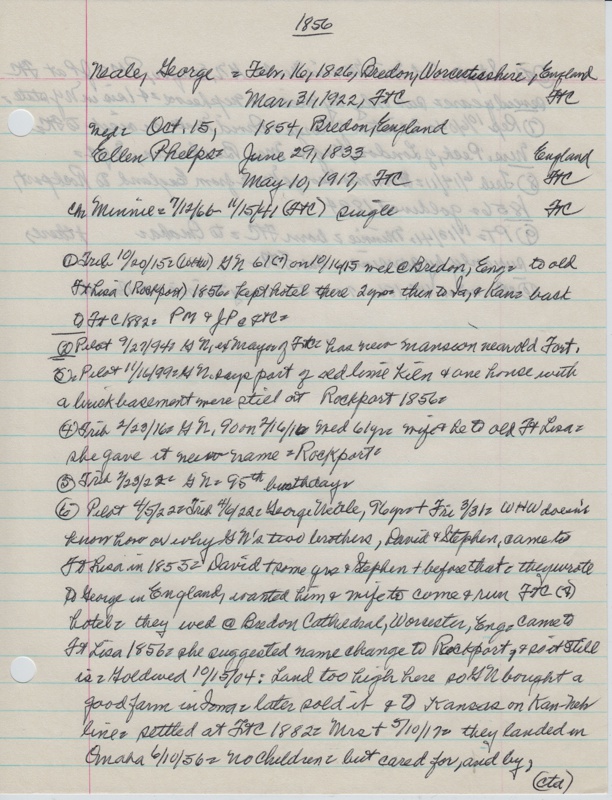 1856
Neale, George = Feb, 16, 1826, Bredon, Worcestershire, England
Mar, 31, 1922, FtC FtC
wed = Oct, 15, 1854, Bredon, England
Ellen Phelps = June 29, 1833 England
May 10, 1917, FtC FtC
Ch Minnie = 7/12/66 - 11/15/41 (FtC) single FtC
① Trib 10/20/15 = (WHW) GN 61(?) on 10/16/15 wed @ Bredon, Eng = to old
Ft Lisa (Rockport) 1856 = Kept hotel there 2yrs = then to Ia, & Kan = back
to FtC 1882 = PM & JP @ FtC =
② Pilot 9/27/94 = GN, ex Mayor of FtC = has new mansion near old Fort,
③ Pilot 11/16/99 = GN says part of old lime kiln & one house with
a brick basement were still at Rockport 1856 =
④ Trib 2/23/16 = GN, 90 on 2/16/16 wed 61yr = wife & he to old Ft Lisa =
she gave it new name = Rockport =
⑤ Trib 2/23/22 = GN = 95th birthday =
⑥ Pilot 4/5/22 = Trib 4/6/22 = George Neale, 96yr + Fri 3/31 = WHW doesn't
know how or why GN's two brothers, David & Stephen, came to
Ft Lisa in 1855 = David + some yrs & Stephen + before that = they wrote
to George in England, wanted him & wife to come & run FtC (?)
hotel = they wed @ Bredon Cathedral, Worcester, Eng = came to
Ft Lisa 1856 = she suggested name change to Rockport, & so it still
is = Gold wed 10/15/04 = Land too high here so GN bought a
good farm in Iowa = later sold it & to Kansas on Kan-Neb
line = settled at FtC 1882 = Mrs + 5/10/17 = they landed in
Omaha 6/10/56 = no children = but cared for, and by,
(ctd)